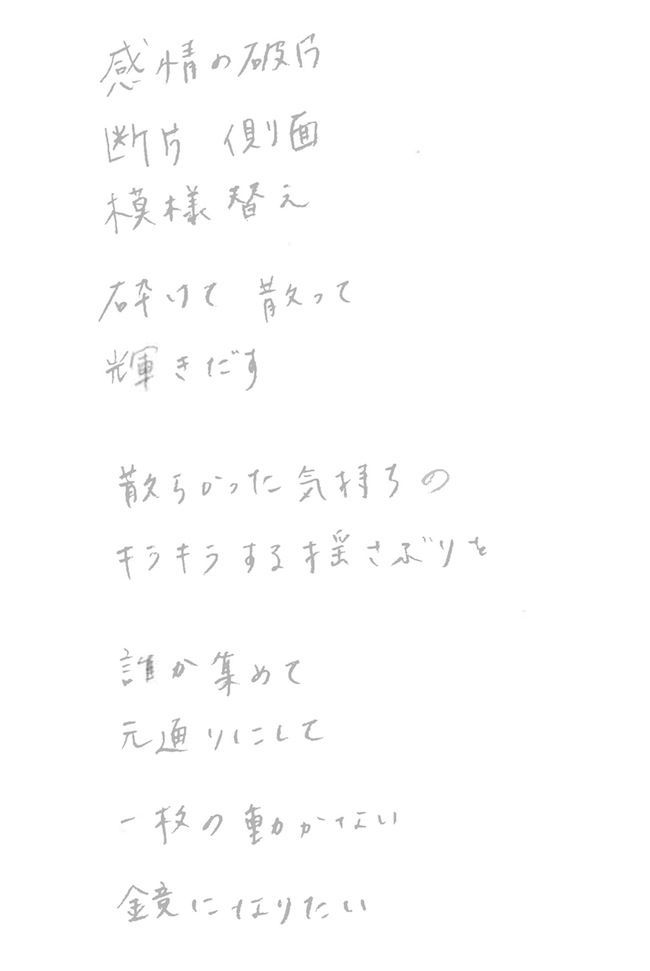 感情の破片
断片 側面
模様替え
砕けて 散って
輝きだす
散らかった気持ちの
キラキラする揺さぶりを
誰か集めて
元通りにして
一枚の動かない
鏡になりたい